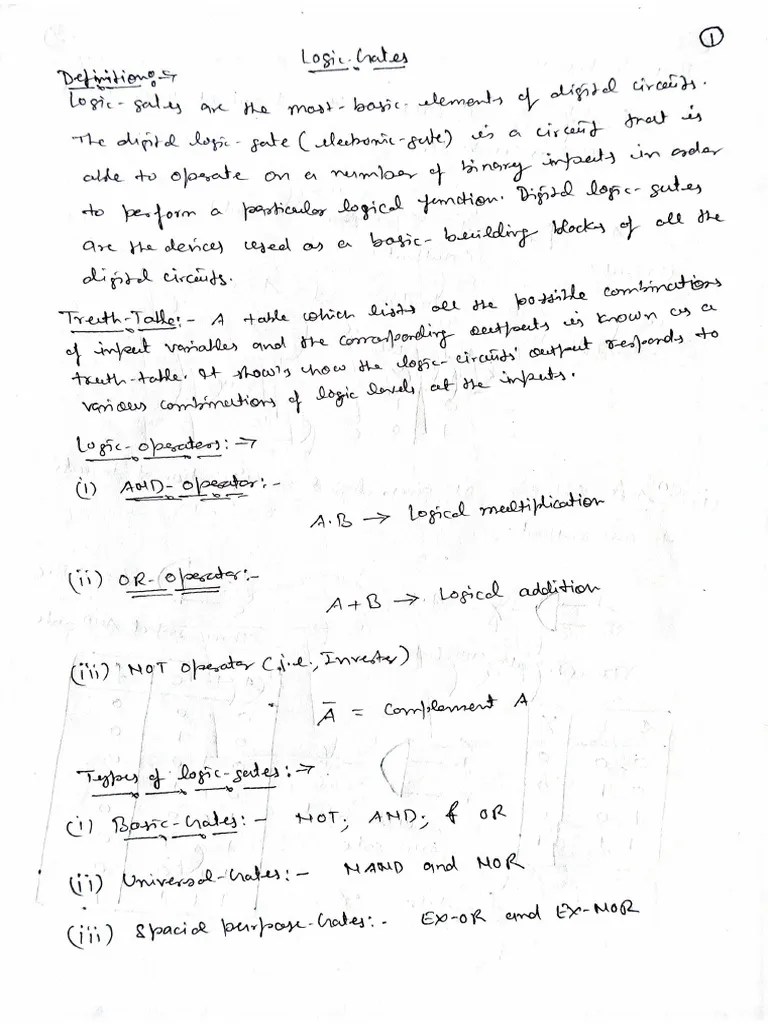 ①
Logic-Gates
Definition:→
Logic-gates are the most-basic-elements of digital circuits.
The digital logic-gate (electronic-gate) is a circuit that is
able to operate on a number of binary inputs in order
to perform a particular logical function. Digital logic-gates
are the devices used as a basic-building blocks of all the
digital circuits.
Truth-Table:- A table which lists all the possible combinations
of input variables and the corresponding outputs is known as a
truth-table. It show's how the logic-circuits' output responds to
various combinations of logic levels at the inputs.
Logic-operators:→
(i) AND-operator:-
A.B → Logical multiplication
(ii) OR-operator:-
A+B → Logical addition
(iii) NOT operator (i.e., Inverter)
Ā = Complement A
Types of logic-gates:→
(i) Basic-Gates:- NOT; AND; & OR
(ii) Universal-Gates:- NAND and NOR
(iii) Spacial purpose-Gates:- EX-OR and EX-NOR